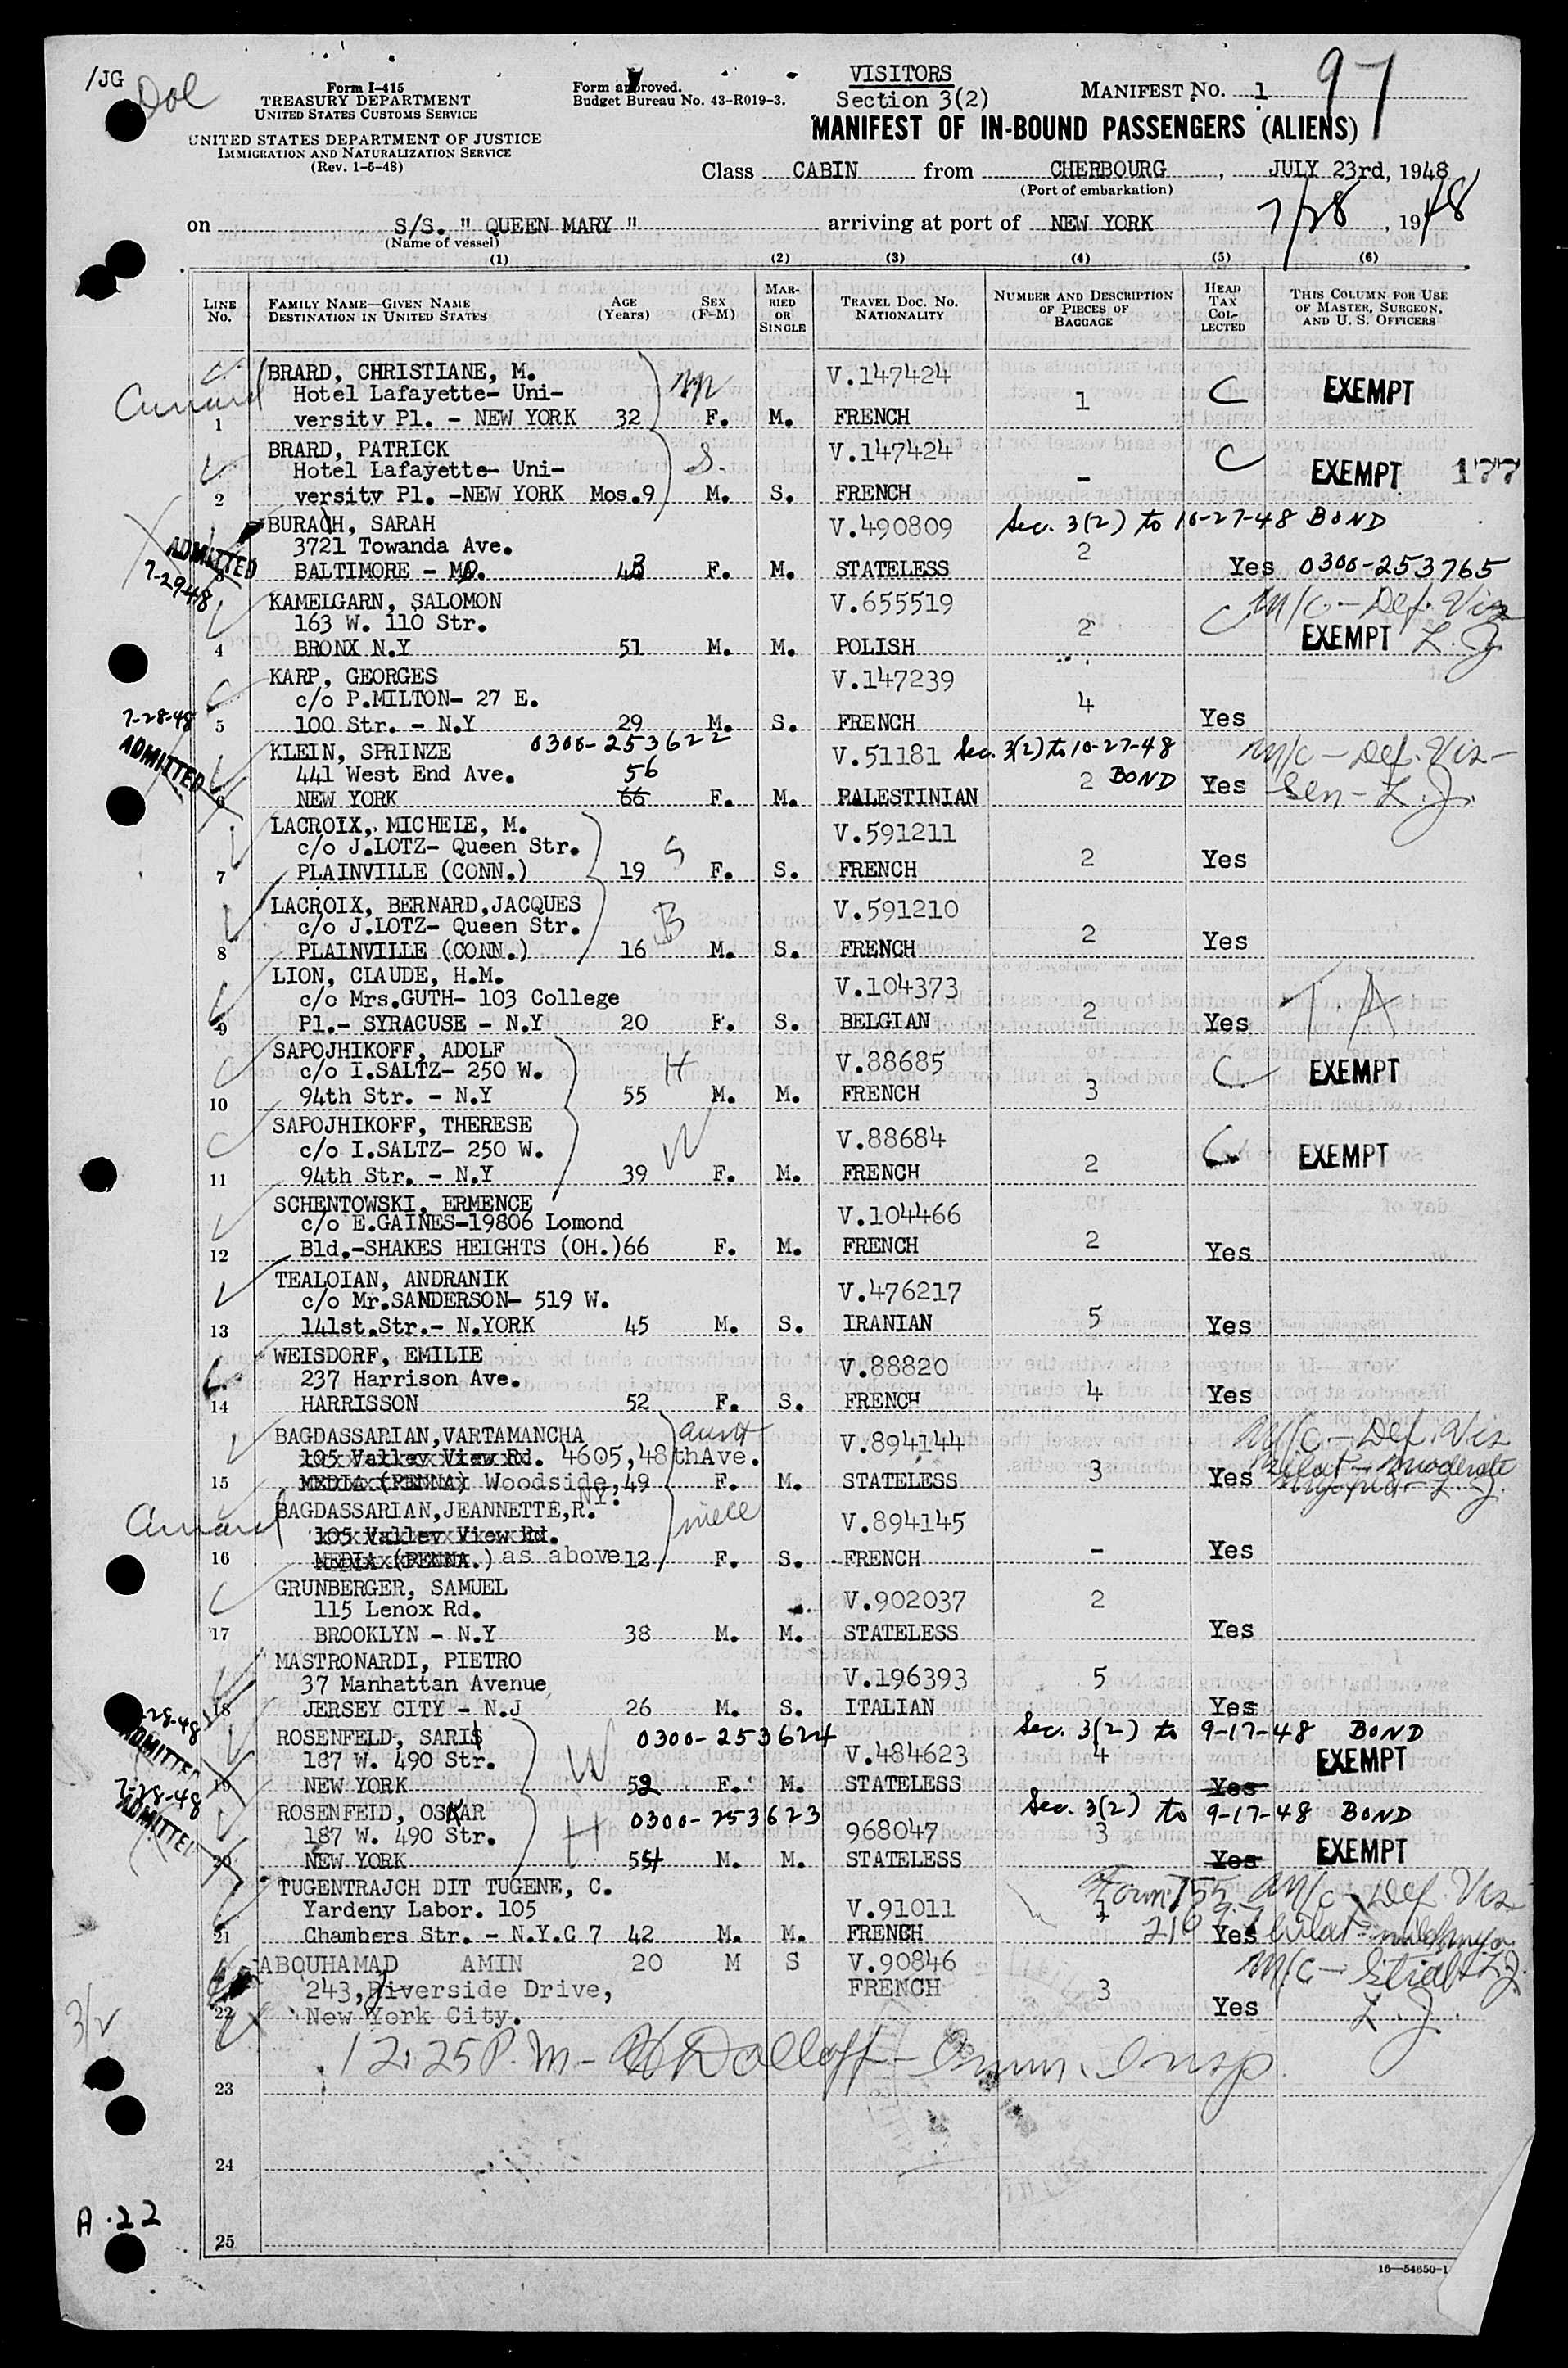 /JG
Dol
Form I-415
TREASURY DEPARTMENT
UNITED STATES CUSTOMS SERVICE
UNITED STATES DEPARTMENT OF JUSTICE
IMMIGRATION AND NATURALIZATION SERVICE
(Rev. 1-5-48)
Form approved.
Budget Bureau No. 43-R019-3.
VISITORS
Section 3(2)
MANIFEST NO. 1
97
MANIFEST OF IN-BOUND PASSENGERS (ALIENS)
Class CABIN from CHERBOURG, JULY 23rd, 1948
(Port of embarkation)
on S/S. " QUEEN MARY " arriving at port of NEW YORK 7/28, 1948
(Name of vessel)
(1) (2) (3) (4) (5) (6)
LINE NO.
FAMILY NAME—GIVEN NAME
DESTINATION IN UNITED STATES
AGE (Years)
SEX (F-M)
MARRIED OR SINGLE
TRAVEL DOC. NO.
NATIONALITY
NUMBER AND DESCRIPTION OF PIECES OF BAGGAGE
HEAD TAX COLLECTED
THIS COLUMN FOR USE OF MASTER, SURGEON, AND U. S. OFFICERS
BRARD, CHRISTIANE, M. V.147424
Hotel Lafayette- Uni- 1 C EXEMPT
1 versity Pl. - NEW YORK 32 F. M. FRENCH
BRARD, PATRICK S. V.147424 C
Hotel Lafayette- Uni- - EXEMPT 177
2 versity Pl. -NEW YORK Mos.9 M. S. FRENCH
BURACH, SARAH V.490809 Sec. 3(2) to 10-27-48 BOND
ADMITTED 3721 Towanda Ave. 2
7-29-48 3 BALTIMORE - MD. 43 F. M. STATELESS Yes 0300-253765
KAMELGARN, SALOMON V.655519 M/C - Def. Vis
163 W. 110 Str. 2 C EXEMPT L. J.
4 BRONX N.Y 51 M. M. POLISH
KARP, GEORGES V.147239
c/o P.MILTON- 27 E. 4
5 100 Str. - N.Y 29 M. S. FRENCH Yes
7-28-48 ADMITTED
0300-253622
KLEIN, SPRINZE V.51181 Sec. 3(2) to 10-27-48 M/C - Def. Vis -
441 West End Ave. 56 2 BOND Yes Sen - L. J.
6 NEW YORK 66 F. M. PALESTINIAN
LACROIX, MICHELE, M. V.591211
c/o J.LOTZ- Queen Str. S 2 Yes
7 PLAINVILLE (CONN.) 19 F. S. FRENCH
LACROIX, BERNARD,JACQUES V.591210
c/o J.LOTZ- Queen Str. B 2 Yes
8 PLAINVILLE (CONN.) 16 M. S. FRENCH
LION, CLAUDE, H.M. V.104373
c/o Mrs.GUTH- 103 College 2 T A
9 Pl.- SYRACUSE - N.Y 20 F. S. BELGIAN Yes
SAPOJHIKOFF, ADOLF V.88685
c/o I.SALTZ- 250 W. H C EXEMPT
10 94th Str. - N.Y 55 M. M. FRENCH 3
SAPOJHIKOFF, THERESE V.88684
c/o I.SALTZ- 250 W. W C EXEMPT
11 94th Str. - N.Y 39 F. M. FRENCH 2
SCHENTOWSKI, ERMENCE V.104466
c/o E.GAINES-19806 Lomond
12 Bld.-SHAKES HEIGHTS (OH.)66 F. M. FRENCH 2 Yes
TEALOIAN, ANDRANIK V.476217
c/o Mr.SANDERSON- 519 W.
13 141st.Str.- N.YORK 45 M. S. IRANIAN 5 Yes
WEISDORF, EMILIE V.88820
237 Harrison Ave.
14 HARRISSON 52 F. S. FRENCH 4 Yes
BAGDASSARIAN,VARTAMANCHA aunt V.894144 M/C - Def. Vis
105 Valley View Rd. 4605,48thAve. moderate
15 MEDIA (PENNA) Woodside,49 F. M. STATELESS 3 Yes L. J.
NY.
BAGDASSARIAN,JEANNETTE,R. niece V.894145
105 Valley View Rd.
16 MEDIA (PENNA.) as above 12 F. S. FRENCH - Yes
GRUNBERGER, SAMUEL V.902037 2
115 Lenox Rd.
17 BROOKLYN - N.Y 38 M. M. STATELESS Yes
MASTRONARDI, PIETRO V.196393 5
37 Manhattan Avenue
18 JERSEY CITY - N.J 26 M. S. ITALIAN Yes
7-28-48 ADMITTED
ROSENFELD, SARI 0300-253624 V.484623 Sec. 3(2) to 9-17-48 BOND
187 W. 490 Str. W 4 EXEMPT
19 NEW YORK 52 F. M. STATELESS Yes
7-28-48 ADMITTED
ROSENFELD, OSKAR 0300-253623 968047 Sec. 3(2) to 9-17-48 BOND
187 W. 490 Str. H 3 EXEMPT
20 NEW YORK 54 M. M. STATELESS Yes
TUGENTRAJCH DIT TUGENE, C. V.91011 M/C - Def. Vis
Yardeny Labor. 105 1
21 Chambers Str. - N.Y.C 7 42 M. M. FRENCH Yes
ABOUHAMAD AMIN 20 M S V.90846 M/C - L. J.
243, Riverside Drive, FRENCH 3
22 New York City. Yes L. J.
12:25 P. M - Dolloff - Imm. Insp.
23
24
25
A-22
16—54650-1